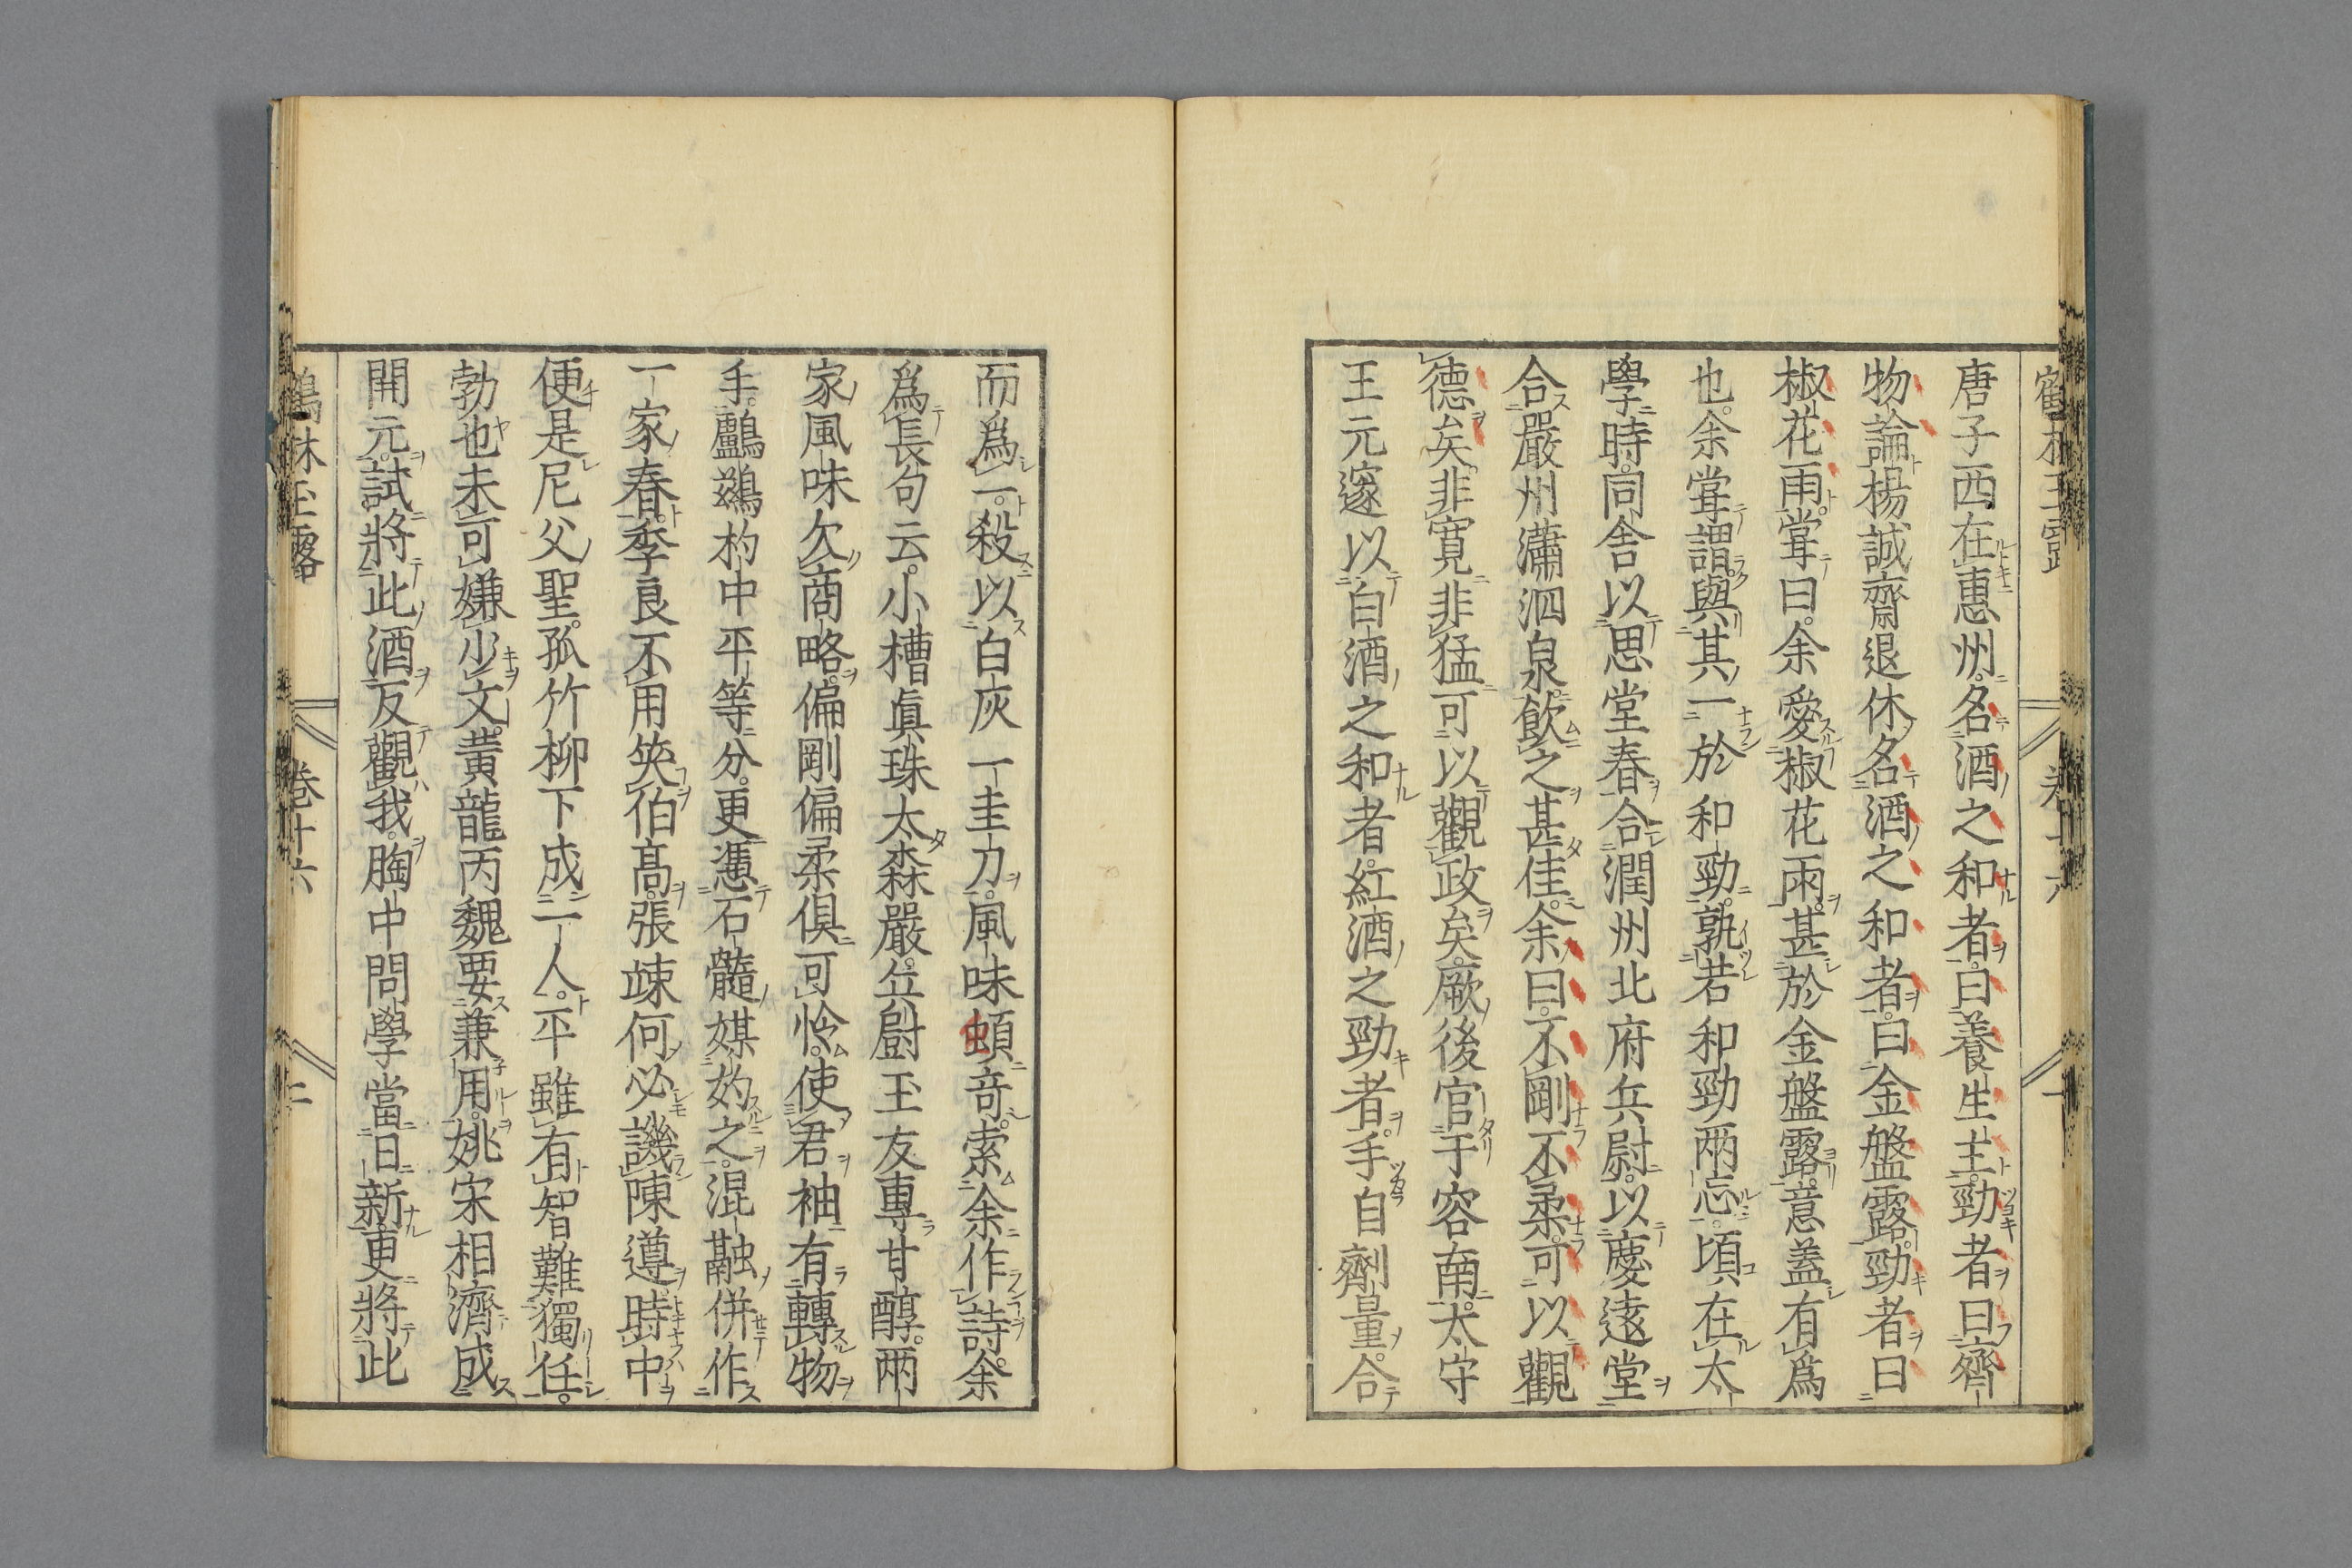 唐子西在惠州。名酒之和者。曰養生主。勁者曰齊
物論。楊誠齋退休。名酒之和者。曰金盤露。勁者曰
椒花雨。甞曰。余愛椒花雨。甚於金盤露。意蓋有爲
也。余甞謂。與其一於和勁。孰若和勁兩忘。頃在太
學時。同舎以思堂春。合潤州北府兵尉。以慶遠堂
合嚴州瀟泗泉。飲之甚佳。余曰。不剛不柔。可以觀
德矣。非寛非猛。可以觀政矣。厥後官于容南。太守
王元邃以白酒之和者。紅酒之勁者。手自劑量。合
而爲一。殺以白灰一圭刀。風味頓竒。索余作詩。余
爲長句云。小槽眞珠太森嚴。兵廚玉友專甘醇。兩
家風味欠商略。偏剛偏柔俱可怜。使君袖有轉物
手。鸕鷀杓中平等分。更憑石髓媒妁之。混融併作
一家春。季良不用笑伯髙。張竦何必譏陳遵。時中
便是尼父聖。孤竹柳下成二人。平雖有智難獨任。
勃也未可嫌少文。黄龍丙魏要兼用。姚宋相濟成
開元。試將此酒反觀我。胸中問學當日新。更將此
鶴林玉露 卷十六 二